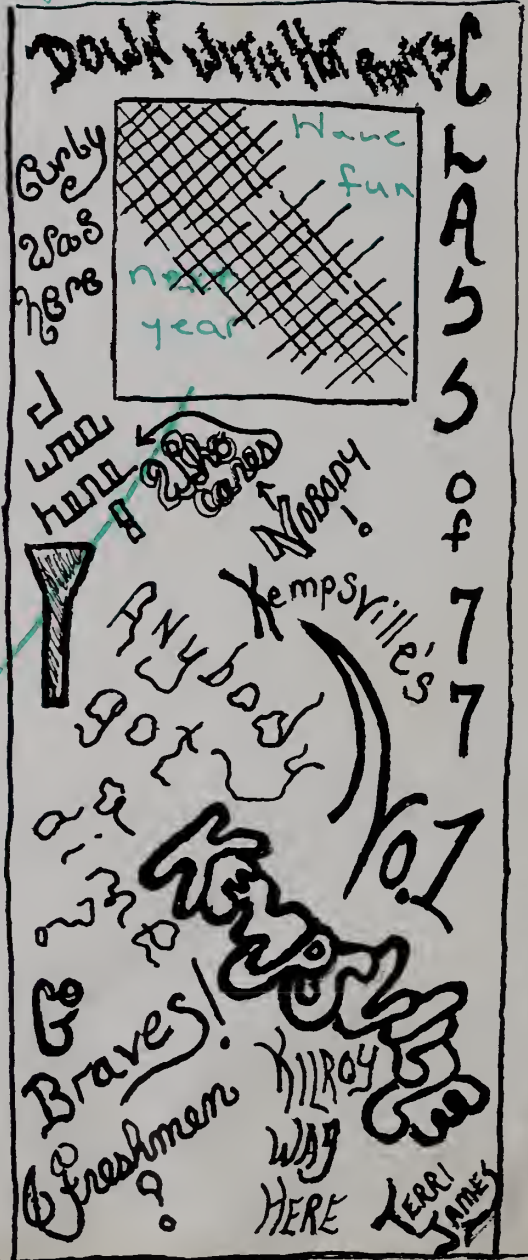 DOWN WITH HOT PANTS
CLASS of 77
Curly
was
here
Have
fun
next
year
I
was
here
!!
Who
cares
NOBODY!
Kempsville's
No.1
Anybody
got
Kempsville
Go
Braves!
Freshmen
?
KILROY
WAS
HERE
TERRI
JAMES